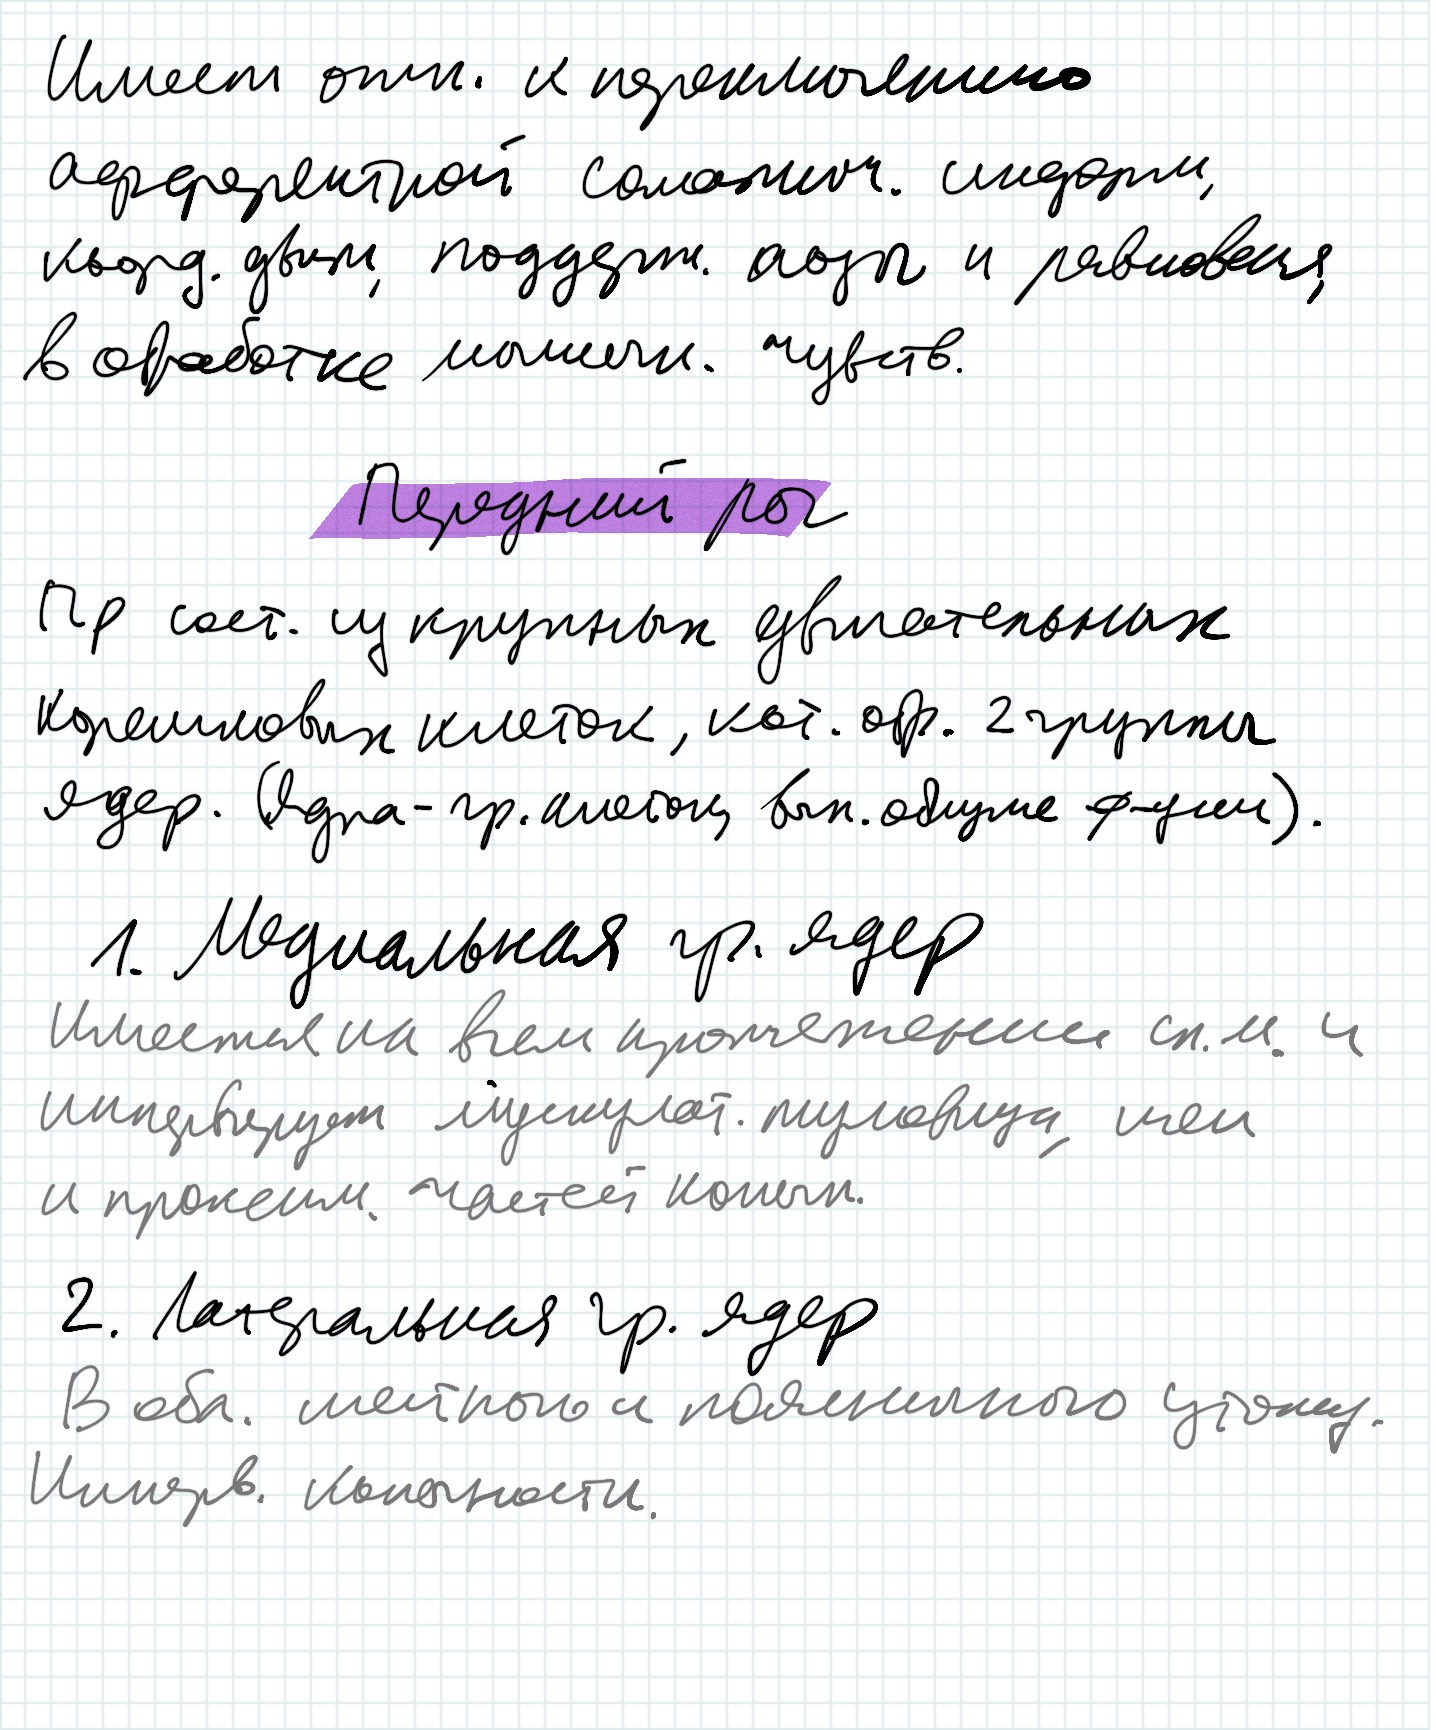 Имеет отн. к переключению
афферентной соматич. информ,
коорд. движ, поддерж. позы и равновесия,
в обработке мышечн. чувств.
Передний рог
ПР сост. из крупных двигательных
корешковых клеток, кот. обр. 2 группы
ядер. (Ядра - гр. клеток, вып. общие ф-ции).
1. Медиальная гр. ядер
Имеется на всем протяжении сп. м. и
иннервирует мускулат. туловища, шеи
и проксим. частей конечн.
2. Латеральная гр. ядер
В обл. шейного и поясничного утолщ.
Иннерв. конечности.